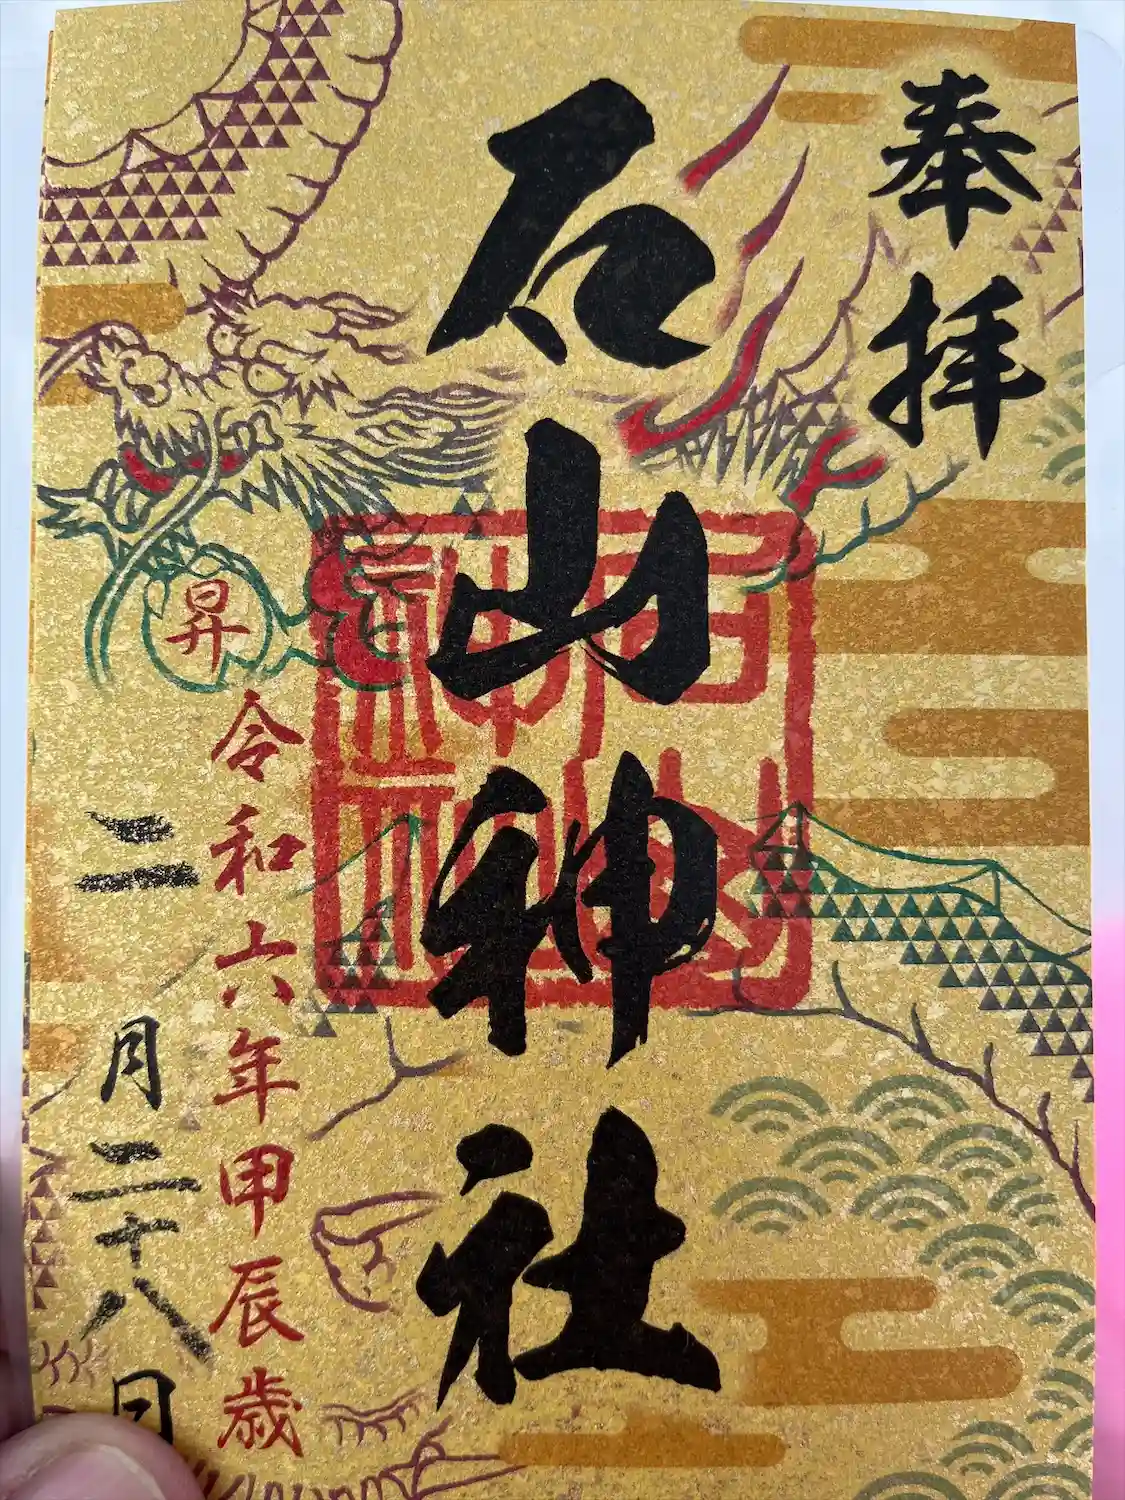 奉拝
石山神社
昇
令和六年甲辰歳
二月二十八日